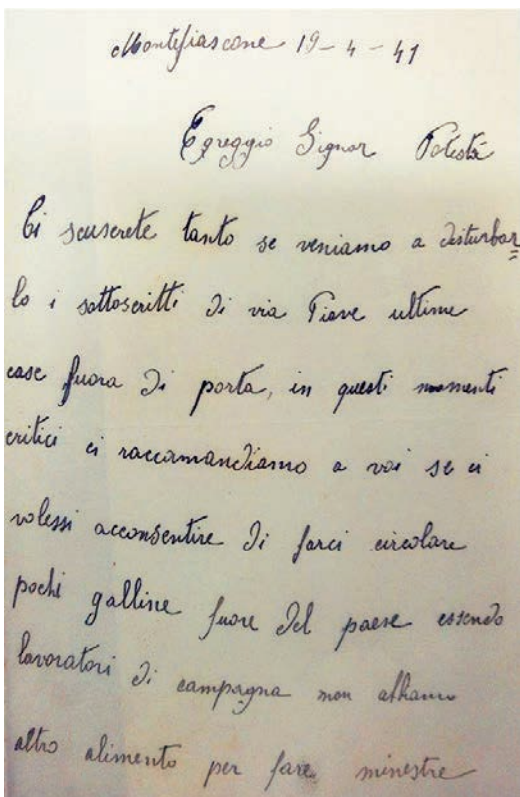 Montefiascone 19-4-41
Egreggio Signor Potestà
Ci scuserete tanto se veniamo a disturbar
lo i sottoscritti di via Piave ultime
case fuora di porta, in questi momenti
critici ci raccomandiamo a voi se ci
volessi acconsentire di farci circolare
pochi galline fuore del paese essendo
lavoratori di campagna non abbiamo
altro alimento per fare minestre